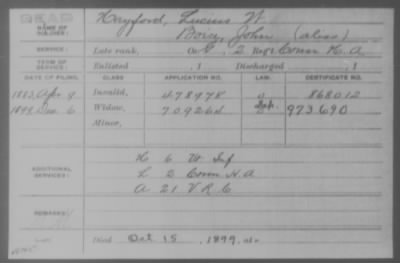 DEAD
NAME OF SOLDIER: Hayford, Lucius W.
John (alias)
SERVICE: Late rank, Co. G, 2 Reg't Conn H. A
TERM OF SERVICE: Enlisted , 1 Discharged , 1
DATE OF FILING. CLASS. APPLICATION NO. LAW. CERTIFICATE NO.
1883, Apr 9 Invalid, 478978 868012
Dec 6 Widow, 709264 973690
Minor,
ADDITIONAL SERVICES: K 6 W Inf
L 2 Conn H.A
A 21 V R C
REMARKS:
Died Oct 15, 1899, at